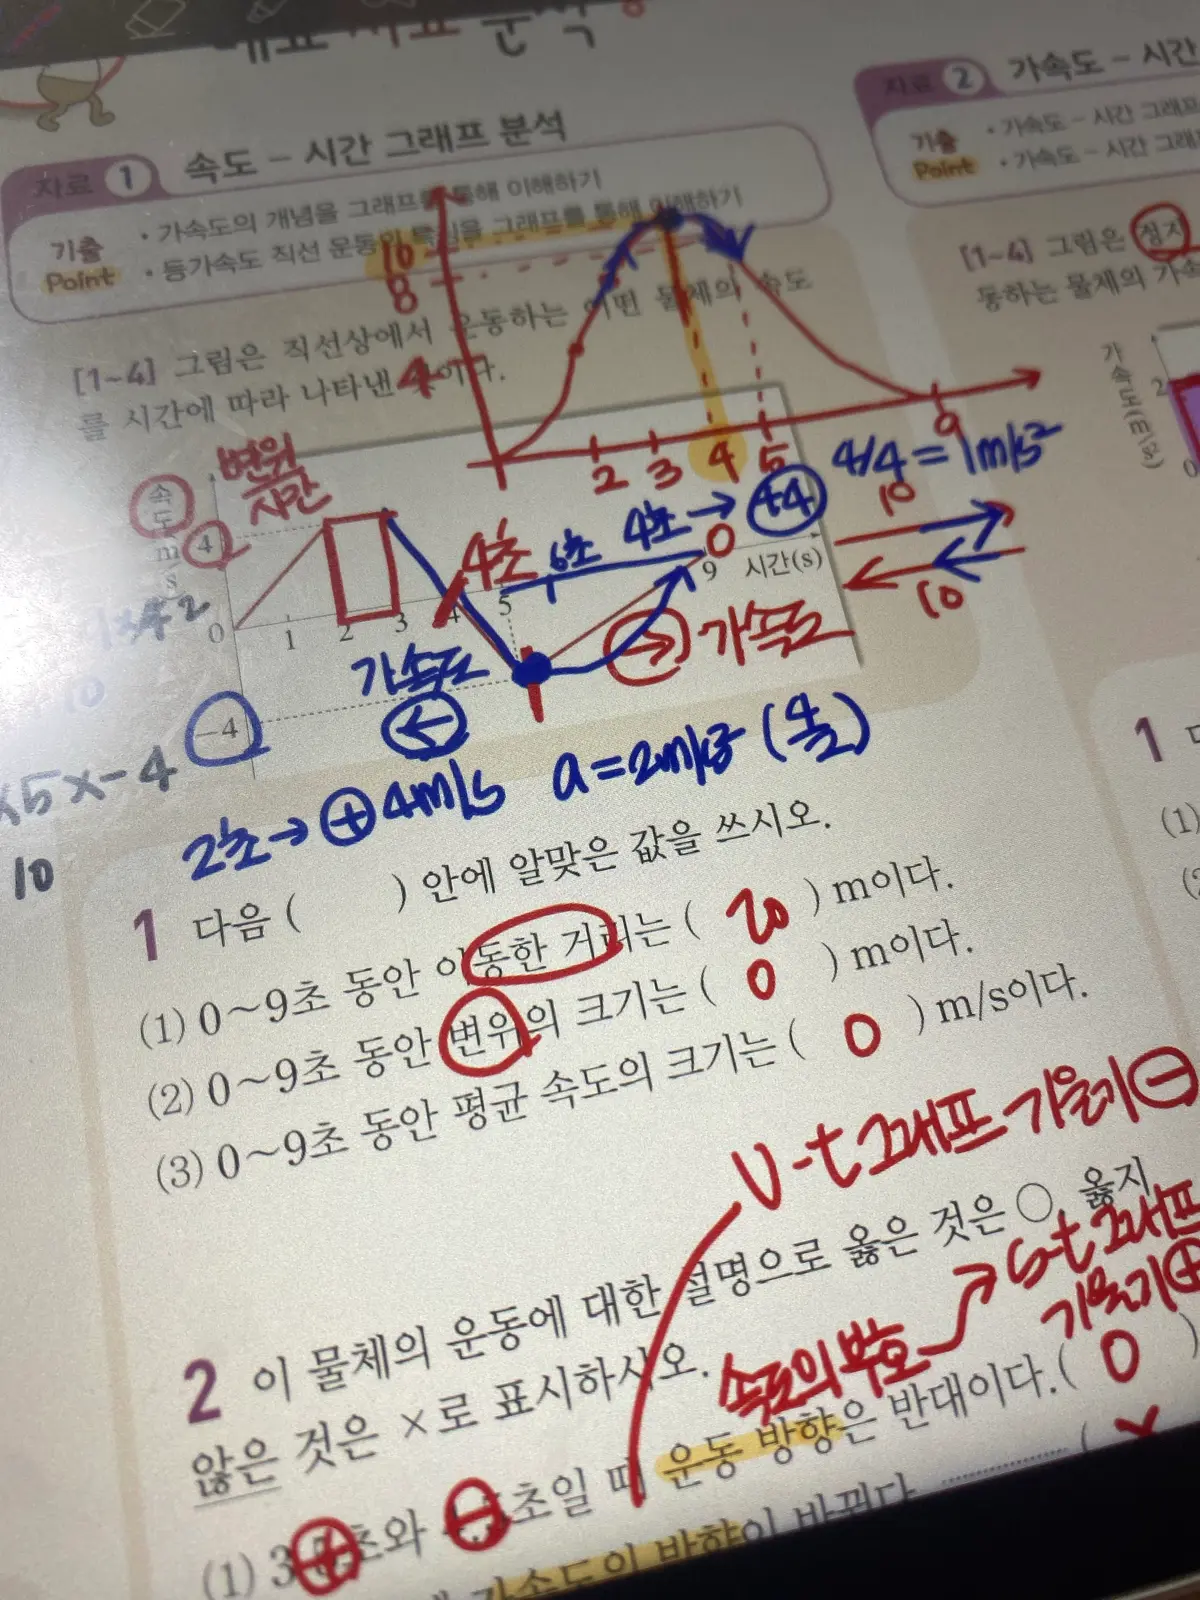 자료 1 속도 - 시간 그래프 분석
기출 Point
• 가속도의 개념을 그래프를 통해 이해하기
• 등가속도 직선 운동의 특징을 그래프를 통해 이해하기
[1~4] 그림은 직선상에서 운동하는 어떤 물체의 속도
를 시간에 따라 나타낸 것이다.
10
8
4
2 3 4 5 9
변위
시간
속도(m/s)
4
2
0 1 2 3 4 5 9 시간(s)
-4
4초 6초 4초→ +4
4/4 = 1m/s²
10
10
0
가속도
←
→ 가속도
×5×-4
10
2초→ + 4m/s a=2m/s² (4/2)
1 다음 ( ) 안에 알맞은 값을 쓰시오.
(1) 0~9초 동안 이동한 거리는 ( 20 ) m이다.
(2) 0~9초 동안 변위의 크기는 ( 0 ) m이다.
(3) 0~9초 동안 평균 속도의 크기는 ( 0 ) m/s이다.
v-t 그래프 기울기 -
2 이 물체의 운동에 대한 설명으로 옳은 것은 ○, 옳지
않은 것은 ×로 표시하시오.
속도의 부호 → s-t 그래프
기울기 +
(1) 3 초와 초일 때 운동 방향은 반대이다. ( O )
+ -
가속도의 방향이 바뀐다. ( ×
자료 2 가속도 - 시간
기출 Point
• 가속도 - 시간 그래프
• 가속도 - 시간 그래
[1~4] 그림은 정지
동하는 물체의 가속
가속도(m/s²)
2
0
1 다
(1)
(2